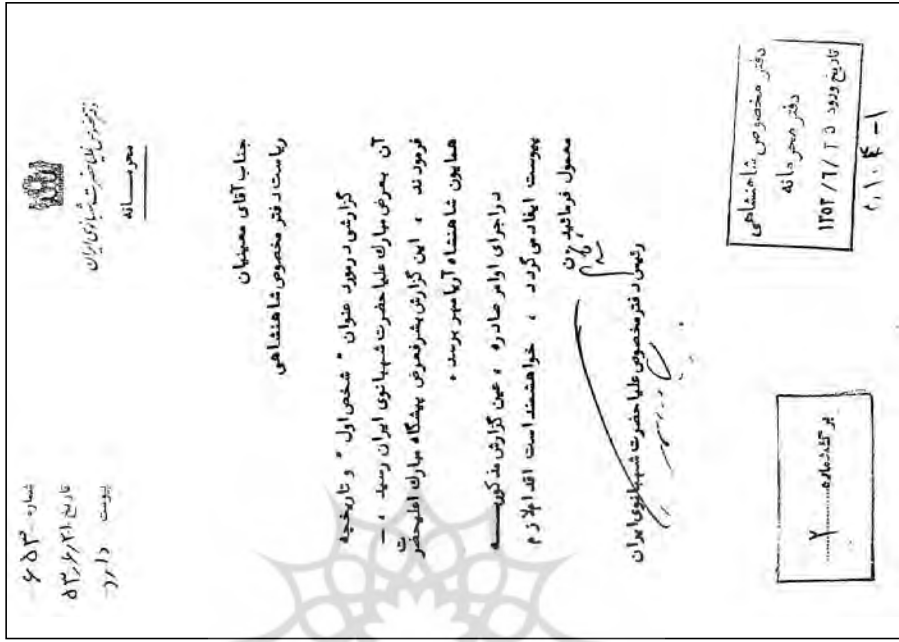 شماره ۶۵۳
تاریخ ۵۳٫۶٫۲۱
پیوست دارد
دفتر مخصوص علیاحضرت شهبانوی ایران
محرمانه
جناب آقای معینیان
ریاست دفتر مخصوص شاهنشاهی
گزارشی در مورد عنوان " شخص اول " و تاریخچه
آن بعرض مبارک علیاحضرت شهبانوی ایران رسید ، -
فرمودند ، این گزارش بشرفعرض پیشگاه مبارک اعلیحضرت
همایون شاهنشاه آریامهر برسد .
در اجرای اوامر صادره ، عین گزارش مذکور به
پیوست ایفاد می گردد ، خواهشمند است اقدام لازم
معمول فرمائید
رئیس دفتر مخصوص علیاحضرت شهبانوی ایران
دفتر مخصوص شاهنشاهی
دفتر محرمانه
تاریخ ورود ۱۳۵۳/۶/۲۵
برگ شماره ۲